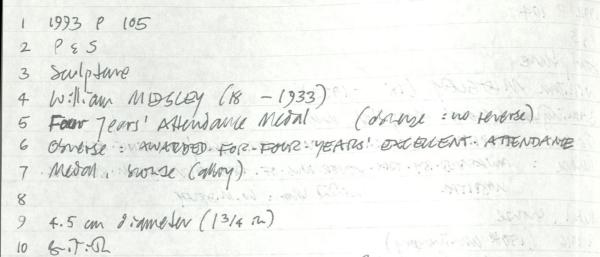 1 1993 P 105
2 P & S
3 Sculpture
4 William MOSLEY (18 - 1933)
5 Four Years' Attendance Medal (obverse : no reverse)
6 Obverse : AWARDED. FOR. FOUR. YEARS' EXCELLENT. ATTENDANCE
7 Medal, bronze (alloy)
8
9 4.5 cm diameter (1 3/4 in)
10